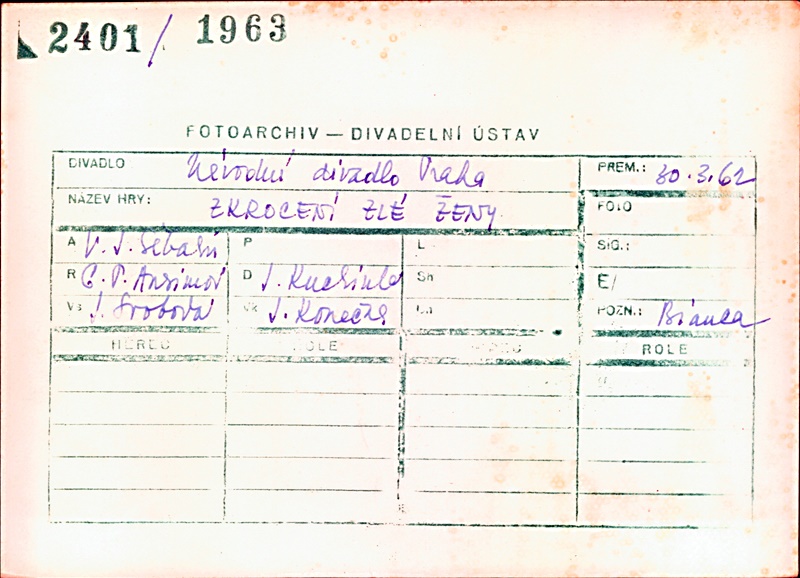 2401/ 1963
FOTOARCHIV — DIVADELNÍ ÚSTAV
DIVADLO Národní divadlo Praha PREM.: 30.3.62
NÁZEV HRY: ZKROCENÍ ZLÉ ŽENY FOTO
A V. J. Šebalin P L SIG.:
R D J. Sh E/
Vs J. Svoboda Vk J. Konečná POZN.: Bianca
HEREC ROLE ROLE